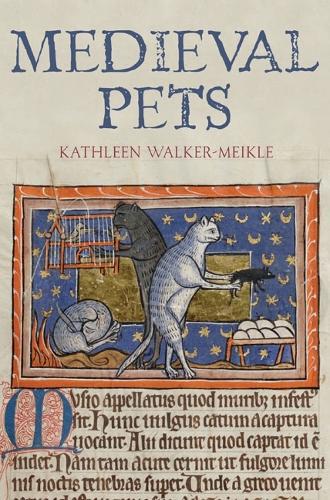 MEDIEVAL
PETS
KATHLEEN WALKER-MEIKLE
Musio appellatus quod murib; infest
sit. Hunc uulgus catum a captura
uocant. Alii dicunt quod captat id ē
uidet. Nam tam acute cernit ut fulgore lumi
nis noctis tenebras superet. Unde a greco uenit